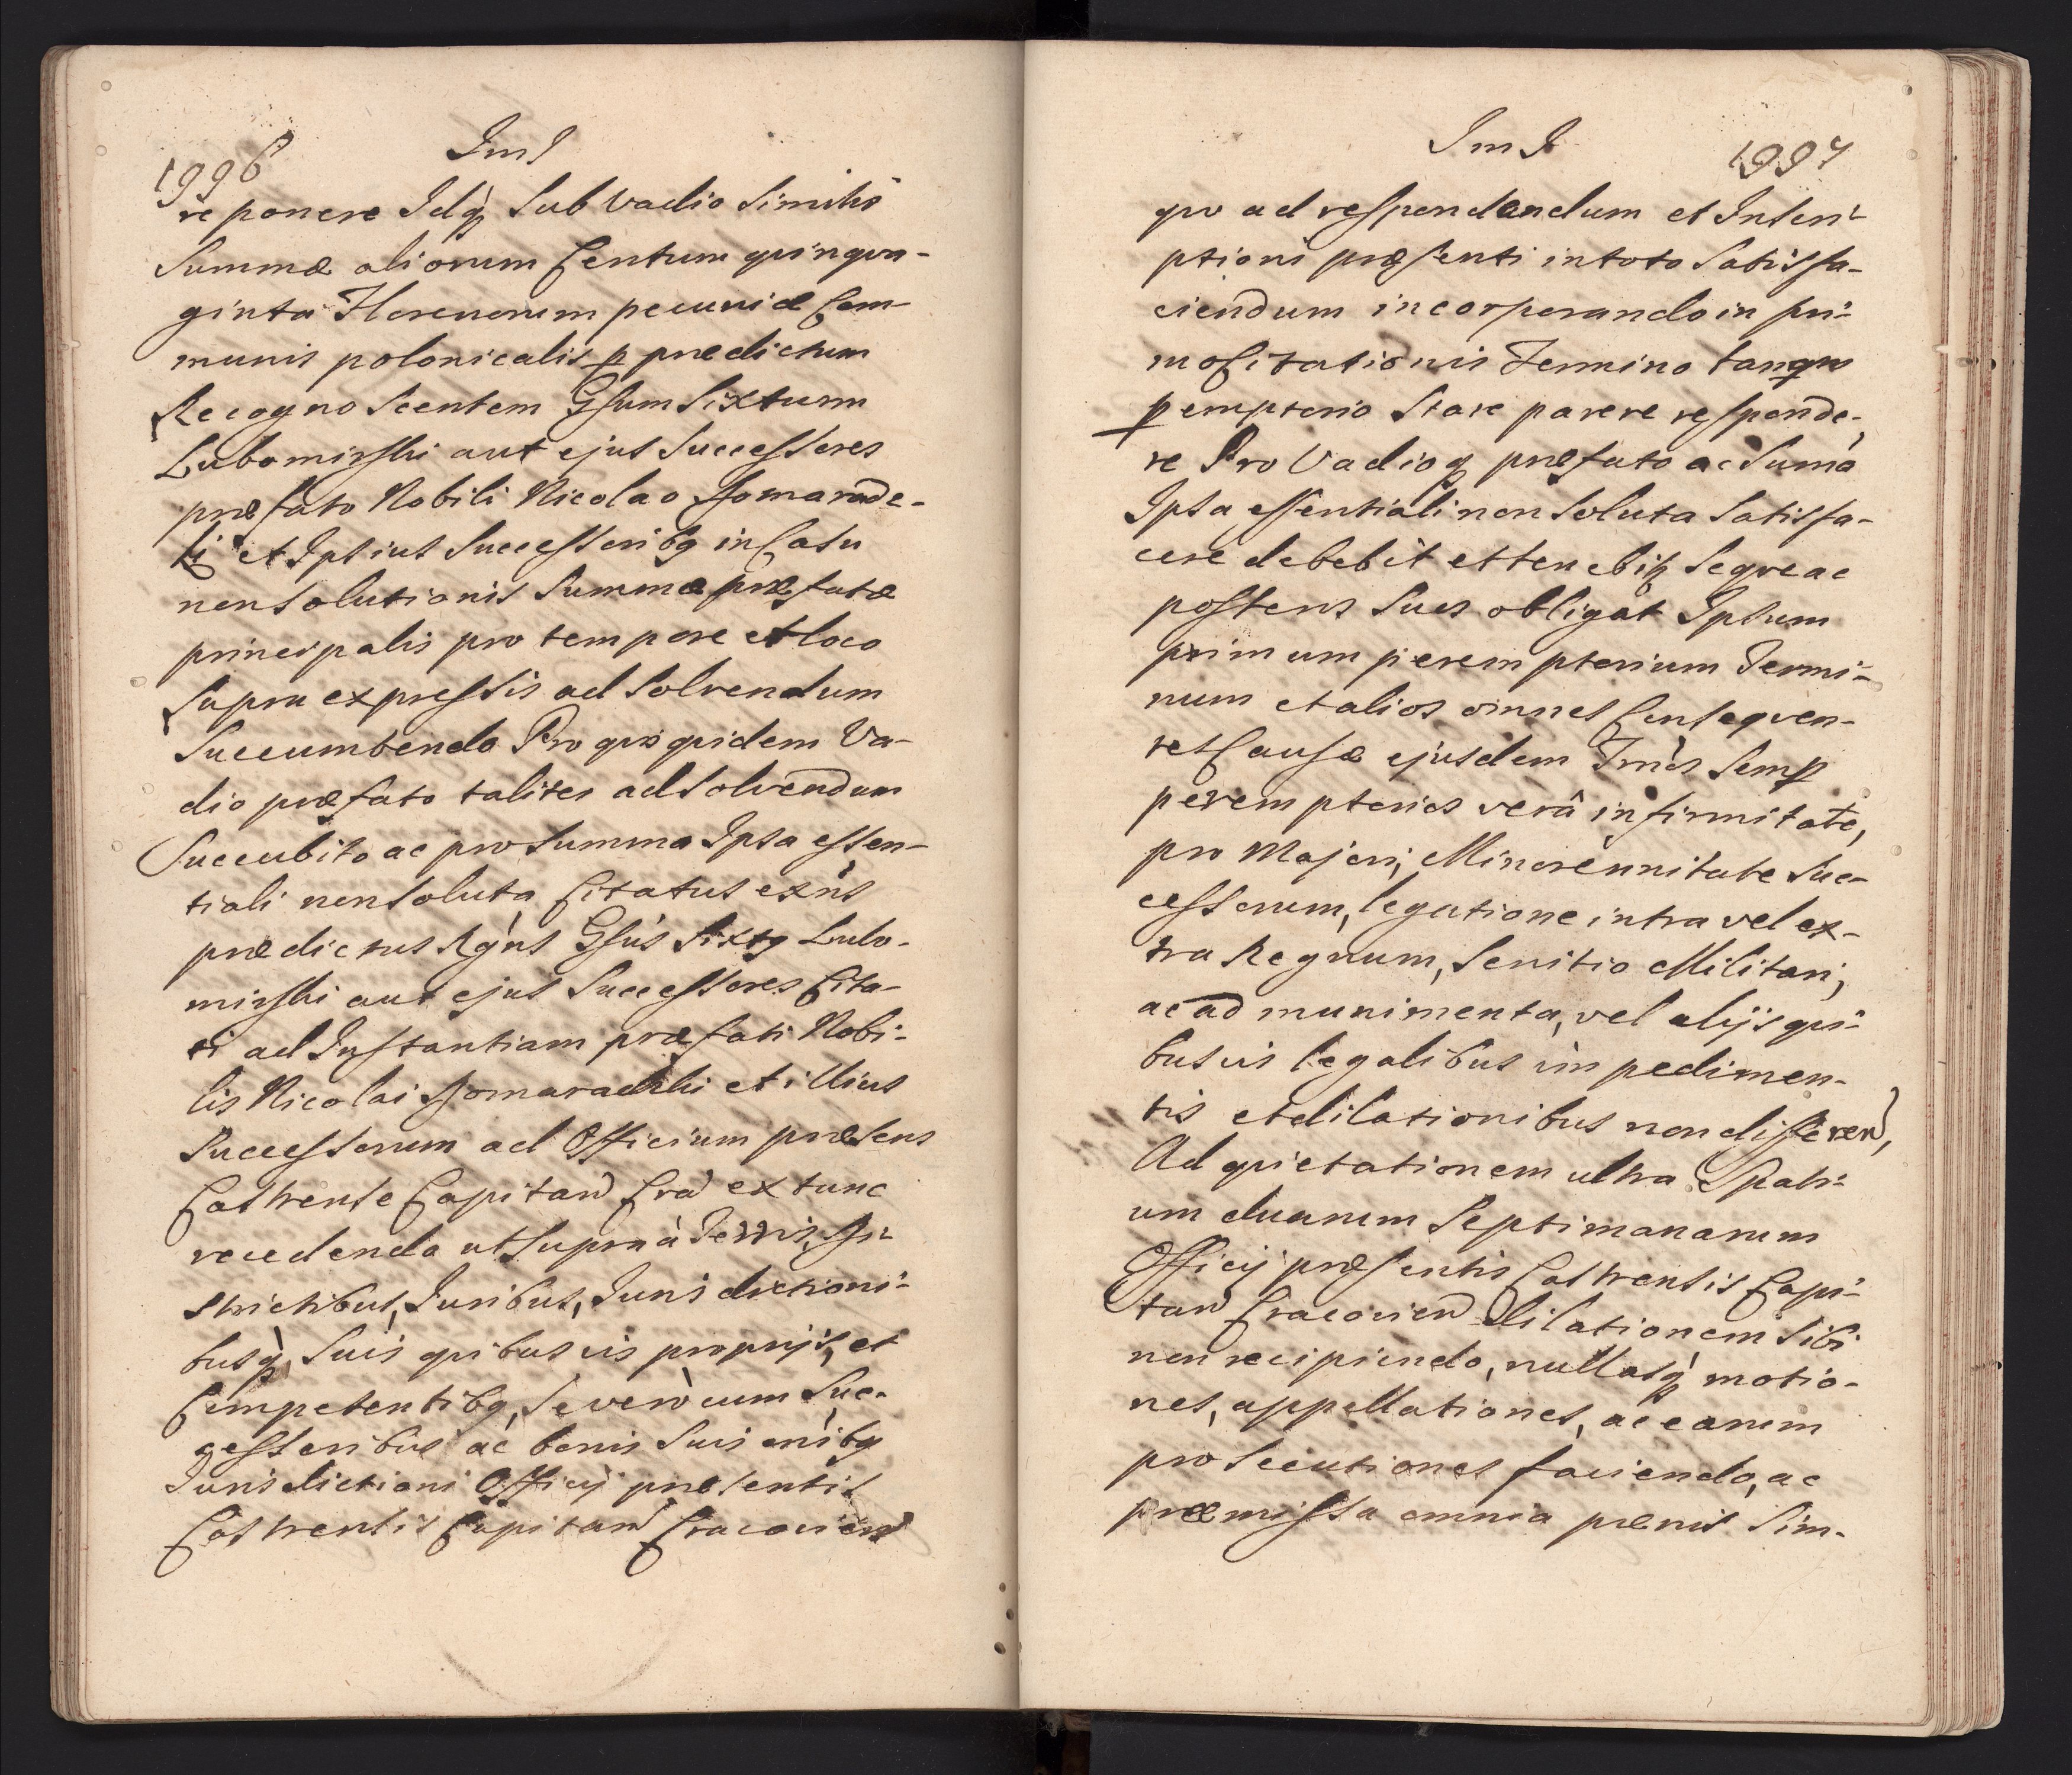 1996
JmJ
reponere Idq̀ Sub Vadio Similis
Summæ aliorum Centum quinqua-
ginta Florenorum pecuniæ Com-
munis polonicalis p prædictum
Recognoscentem Gsum Sixtum
Lubomirski aut ejus Successores
præfato Nobili Nicolao
et Ipsius Successoribq in Casu
non Solutionis Summæ præfatæ
principalis pro tempore et loco
Supra expressis ad Solvendum
Succumbendo Pro quo quidem Va-
dio præfato taliter ad Solvendum
Succubito ac pro Summa Ipsa essen-
tiali non Soluta Citatus exn̄s
prædictus Rgn̄s Gsus Sixtq Lubo-
mirski aut ejus Successores Cita-
ti ad Instantiam præfati Nobi-
lis Nicolai et illius
Successorum ad Officium præsens
Castrense Capitan̄ Cra extunc
recedendo ut Supra à Terris, Di-
strictibus, Juribus, Jurisdictioni-
busq̀, Suis quibusvis proprijs, et
Competentibq, Se verò cum Suc-
cessoribus ac bonis Suis on̄ibq
Jurisdictioni Officij præsentis
Castrensis Capitan̄ Cracovien̄
JmJ
1997
quo ad respondendum et Inscri-
ptioni præsenti in toto Satisfa-
ciendum incorporando in pri-
mo Citationis Termino tanqm
p emptorio Stare parere responde-
re Pro Vadioq præfato ac Suma
Ipsa essentiali non Soluta Satisfa-
cere debebit et tenebitq Seqve ac
posteros Suos obligat Ipsum
primum peremptorium Termi-
num et alios omnes Conseqven-
tes Causæ ejusdem Tmn̄os Semp
peremptorios verâ infirmitate,
pro Majori, Minorennitate Suc-
cessorum, legatione intra vel ex-
tra Regnum, Servitio Militari,
ac ad munimenta, vel alijs qui-
busvis legalibus impedimen-
tis et dilationibus non differen̄,
Ad quietationem ultra Spati-
um duarum Septimanarum
Officij præsentis Castrensis Capi-
tan̄ Cracovien̄ Dilationem Sibi
non recipiendo, nullasq̀ motio-
nes, appellationes, ac earum
prosecutiones faciendo, ac
præmissa omnia pænis Sim-